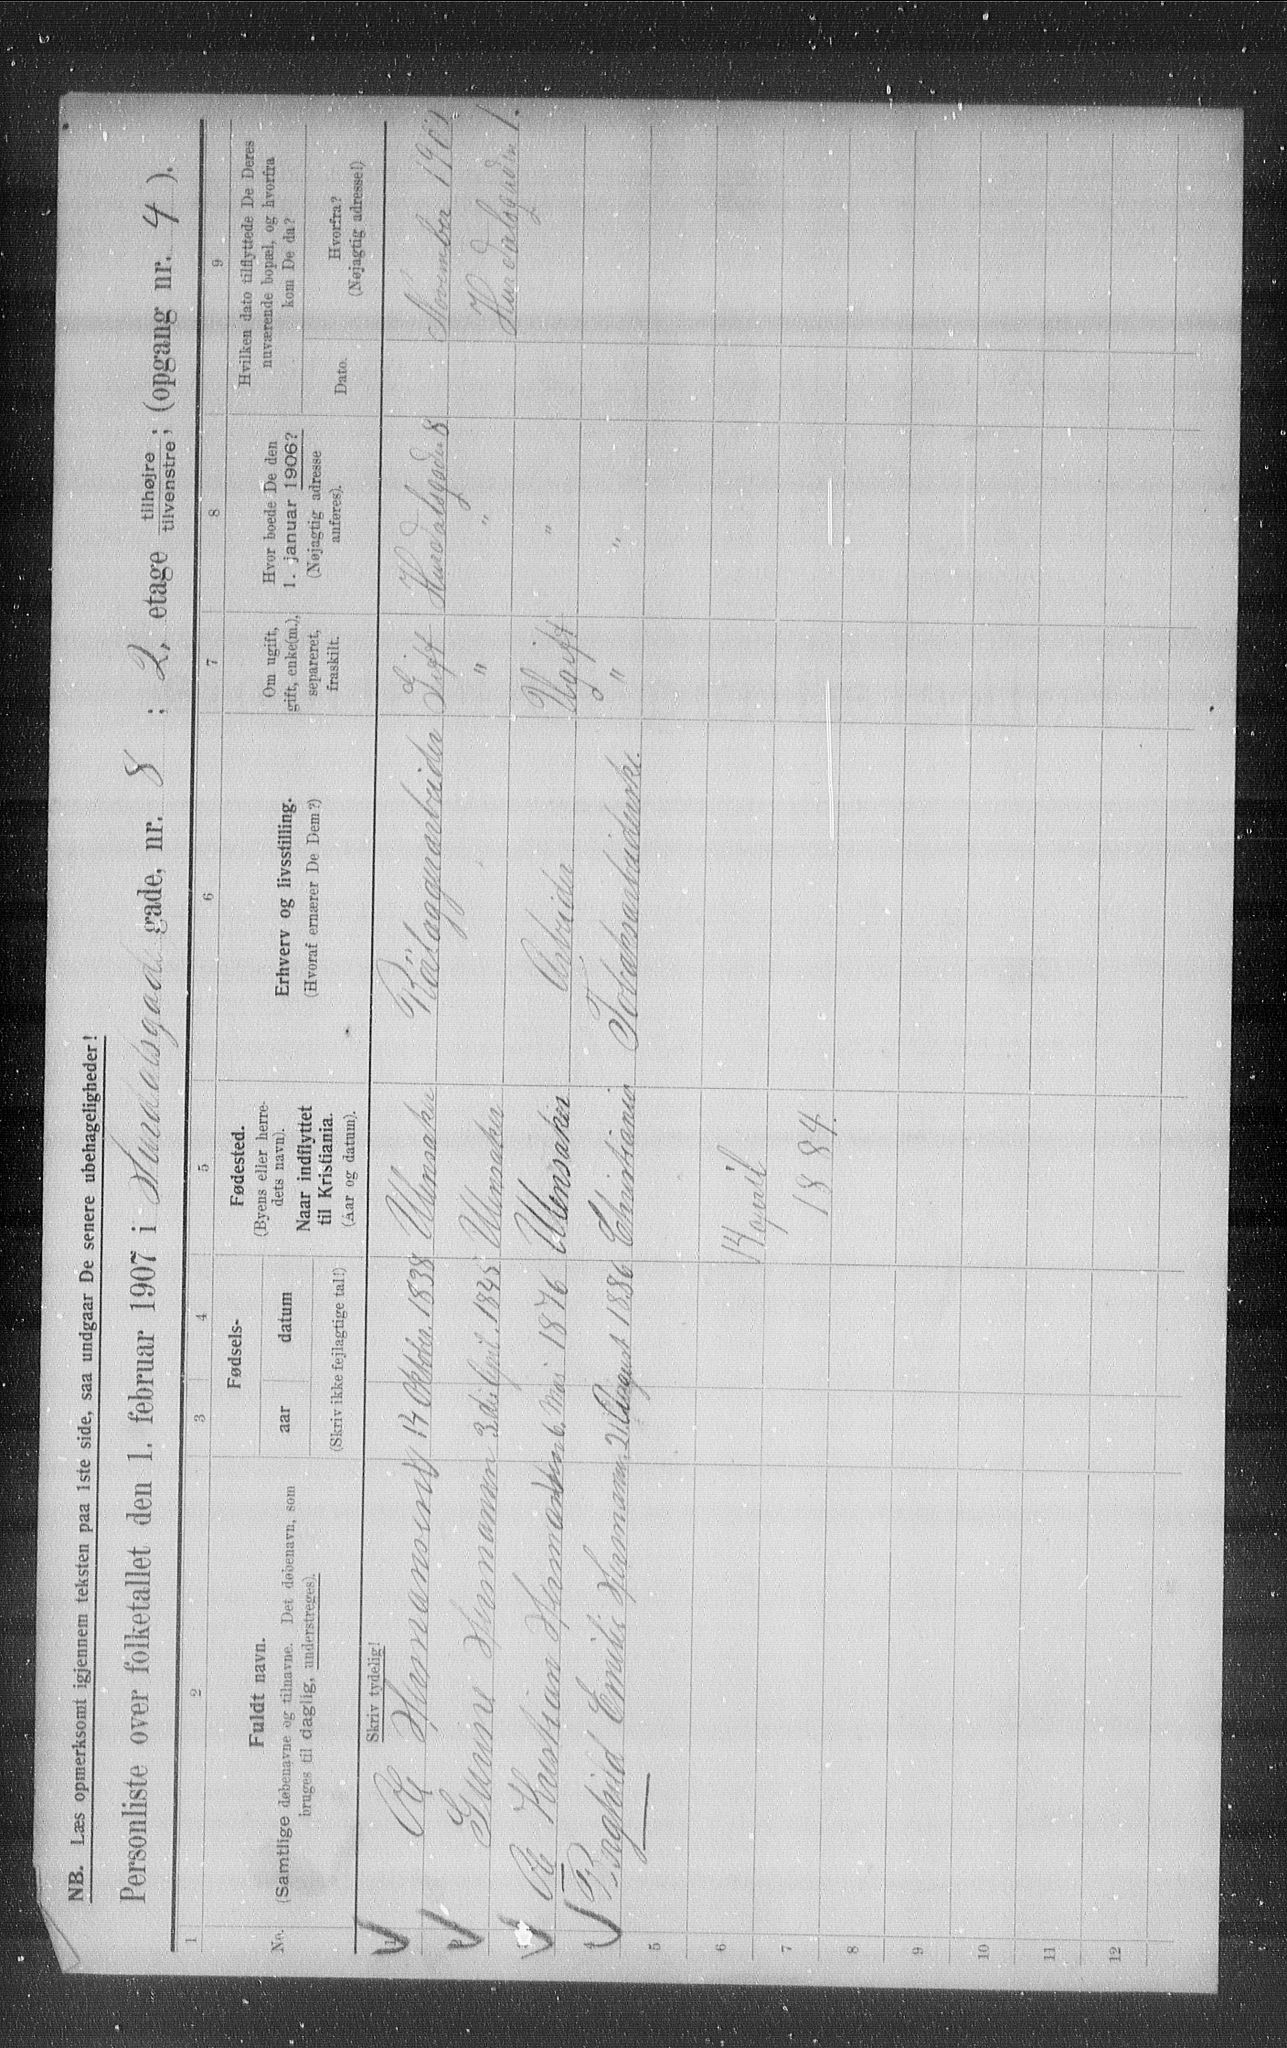 NB. Læs opmerksomt igjennem teksten paa 1ste side, saa undgaar De senere ubehageligheder!
Personliste over folketallet den 1. februar 1907 i Hurdalsgad gade, nr. 8 ; 2. etage tilhøjre/tilvenstre; (opgang nr. 4 ).
1 2 3 4 5 6 7 8 9
No.
Fuldt navn.
(Samtlige døbenavne og tilnavne. Det døbenavn, som
bruges til daglig, understreges).
Fødsels-
aar datum
(Skriv ikke fejlagtige tal!)
Fødested.
(Byens eller herre-
dets navn).
Naar indflyttet
til Kristiania.
(Aar og datum).
Erhverv og livsstilling.
(Hvoraf ernærer De Dem?)
Om ugift,
gift, enke(m.),
separeret,
fraskilt.
Hvor boede De den
1. januar 1906?
(Nøjagtig adresse
anføres).
Hvilken dato tilflyttede De Deres
nuværende bopæl, og hvorfra
kom De da?
Dato.
Hvorfra?
(Nøjagtig adresse!)
Skriv tydelig!
1 Ole Hermansend 14 Oktober. 1838 Ulensaker Gift Hurdalsgaden 8 November 1901
2 Hermansen 3die April. 1845 Ulensaker " " Hurdalsgaden 1.
3 Ole Kristian Hermansen 6. Mai 1876 Ulensaker Arbeider Ugift "
4 Raghild Emilie Hermansen 21 August 1886 Christiania Tobaksarbeiderske. " "
5
6 14 April
7 1884.
8
9
10
11
12